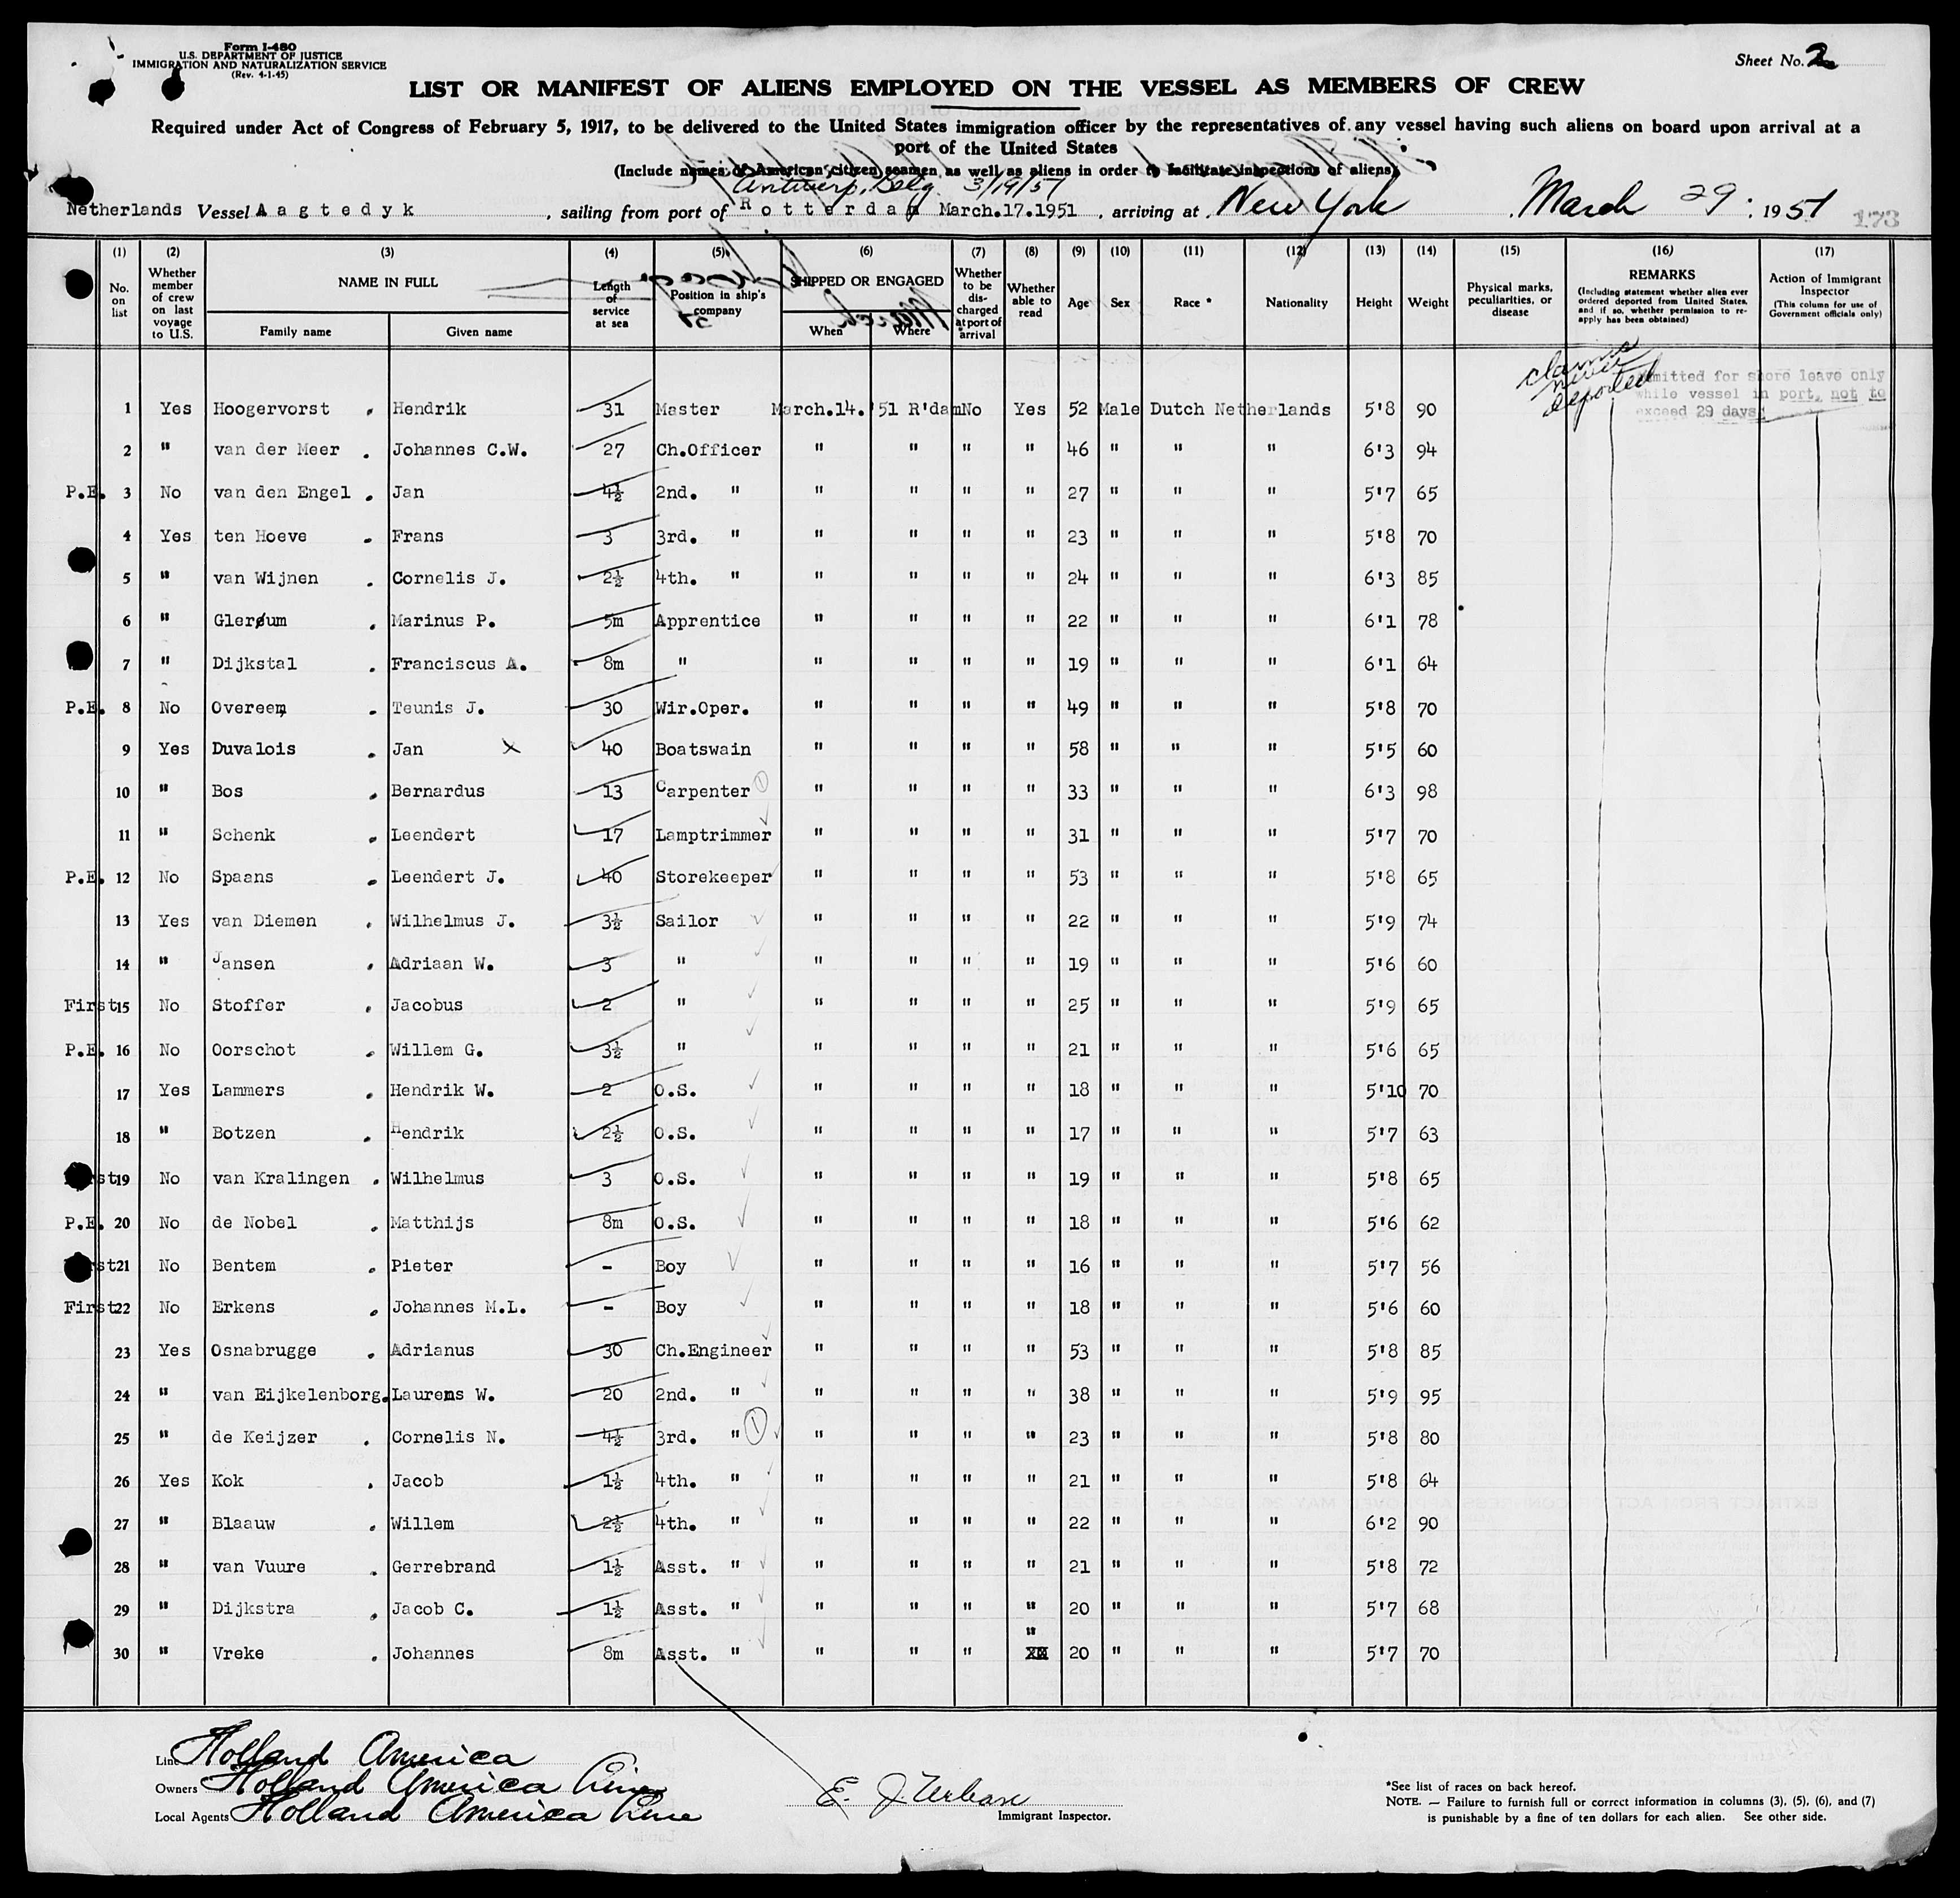 Form I-480
U.S. DEPARTMENT OF JUSTICE
IMMIGRATION AND NATURALIZATION SERVICE
(Rev. 4-1-45)
Sheet No. 2
LIST OR MANIFEST OF ALIENS EMPLOYED ON THE VESSEL AS MEMBERS OF CREW
Required under Act of Congress of February 5, 1917, to be delivered to the United States immigration officer by the representatives of any vessel having such aliens on board upon arrival at a
port of the United States
(Include names of American citizen seamen as well as aliens in order to facilitate inspections of aliens)
Antwerp, Belg. 3/19/51
Netherlands Vessel Aagtedyk, sailing from port of Rotterdam March.17.1951, arriving at New York, March 29, 1951
173
(1) (2) (3) (4) (5) (6) (7) (8) (9) (10) (11) (12) (13) (14) (15) (16) (17)
No. on list
Whether member of crew on last voyage to U.S.
NAME IN FULL
Family name
Given name
Length of service at sea
Position in ship's company
SHIPPED OR ENGAGED
When
Where
Whether to be discharged at port of arrival
Whether able to read
Age
Sex
Race *
Nationality
Height
Weight
Physical marks, peculiarities, or disease
REMARKS
(Including statement whether alien ever ordered deported from United States, and if so, whether permission to re-apply has been obtained)
Action of Immigrant Inspector
(This column for use of Government officials only)
claims never deported
Admitted for shore leave only
while vessel in port, not to
exceed 29 days.
1 Yes Hoogervorst . Hendrik 31 Master March.14.'51 R'dam No Yes 52 Male Dutch Netherlands 5'8 90
2 " van der Meer . Johannes C.W. 27 Ch.Officer " " " " 46 " " " 6'3 94
P.E. 3 No van den Engel . Jan 4½ 2nd. " " " " " 27 " " " 5'7 65
4 Yes ten Hoeve . Frans 3 3rd. " " " " " 23 " " " 5'8 70
5 " van Wijnen . Cornelis J. 2½ 4th. " " " " " 24 " " " 6'3 85
6 " Glerøum . Marinus P. 5m Apprentice " " " " 22 " " " 6'1 78
7 " Dijkstal . Franciscus A. 8m " " " " " 19 " " " 6'1 64
P.E. 8 No Overeem . Teunis J. 30 Wir.Oper. " " " " 49 " " " 5'8 70
9 Yes Duvalois . Jan x 40 Boatswain " " " " 58 " " " 5'5 60
10 " Bos . Bernardus 13 Carpenter 1 " " " " 33 " " " 6'3 98
11 " Schenk . Leendert 17 Lamptrimmer " " " " 31 " " " 5'7 70
P.E. 12 No Spaans . Leendert J. 40 Storekeeper " " " " 53 " " " 5'8 65
13 Yes van Diemen . Wilhelmus J. 3½ Sailor " " " " 22 " " " 5'9 74
14 " Jansen . Adriaan W. 3 " " " " " 19 " " " 5'6 60
First 15 No Stoffer . Jacobus 2 " " " " " 25 " " " 5'9 65
P.E. 16 No Oorschot . Willem G. 3½ " " " " " 21 " " " 5'6 65
17 Yes Lammers . Hendrik W. 2 O.S. " " " " 18 " " " 5'10 70
18 " Botzen . Hendrik 2½ O.S. " " " " 17 " " " 5'7 63
First 19 No van Kralingen . Wilhelmus 3 O.S. " " " " 19 " " " 5'8 65
P.E. 20 No de Nobel . Matthijs 8m O.S. " " " " 18 " " " 5'6 62
First 21 No Bentem . Pieter - Boy " " " " 16 " " " 5'7 56
First 22 No Erkens . Johannes M.L. - Boy " " " " 18 " " " 5'6 60
23 Yes Osnabrugge . Adrianus 30 Ch.Engineer " " " " 53 " " " 5'8 85
24 " van Eijkelenborg. Laurens W. 20 2nd. " " " " " 38 " " " 5'9 95
25 " de Keijzer . Cornelis N. 4½ 3rd. " 1 " " " " 23 " " " 5'8 80
26 Yes Kok . Jacob 1½ 4th. " " " " " 21 " " " 5'8 64
27 " Blaauw . Willem 2½ 4th. " " " " " 22 " " " 6'2 90
28 " van Vuure . Gerrebrand 1½ Asst. " " " " " 21 " " " 5'8 72
29 " Dijkstra . Jacob C. 1½ Asst. " " " " " 20 " " " 5'7 68
30 " Vreke . Johannes 8m Asst. " " " " " 20 " " " 5'7 70
Line Holland America
Owners Holland America Line
Local Agents Holland America Line
E. J. Urban
Immigrant Inspector.
*See list of races on back hereof.
NOTE. — Failure to furnish full or correct information in columns (3), (5), (6), and (7)
is punishable by a fine of ten dollars for each alien. See other side.